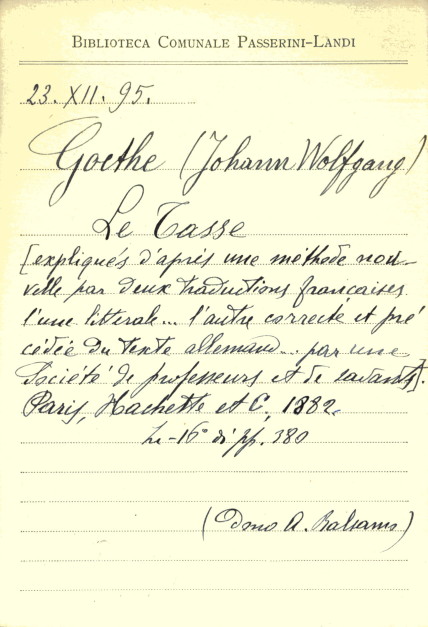 BIBLIOTECA COMUNALE PASSERINI-LANDI
23. XII. 95.
Goethe (Johann Wolfgang)
Le Tasse
[expliqués d'après une méthode nou-
velle par deux traductions françaises
l'une litterale... l'autre correcte et pré
cédée du texte allemand... par une
Société de professeurs et de savants].
Paris, Hachette et C. 1882.
In-16° di pp. 380
(Dono A. Balsamo)